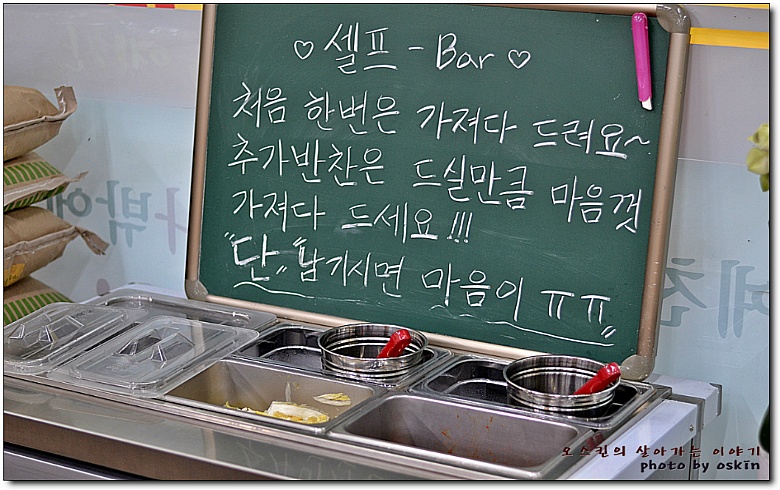 ♡ 셀프 - Bar ♡
처음 한번은 가져다 드려요~
추가반찬은 드실만큼 마음껏
가져다 드세요!!!
"단" 남기시면 마음이 ㅠㅠ"
오스킨의 살아가는 이야기
photo by oskin